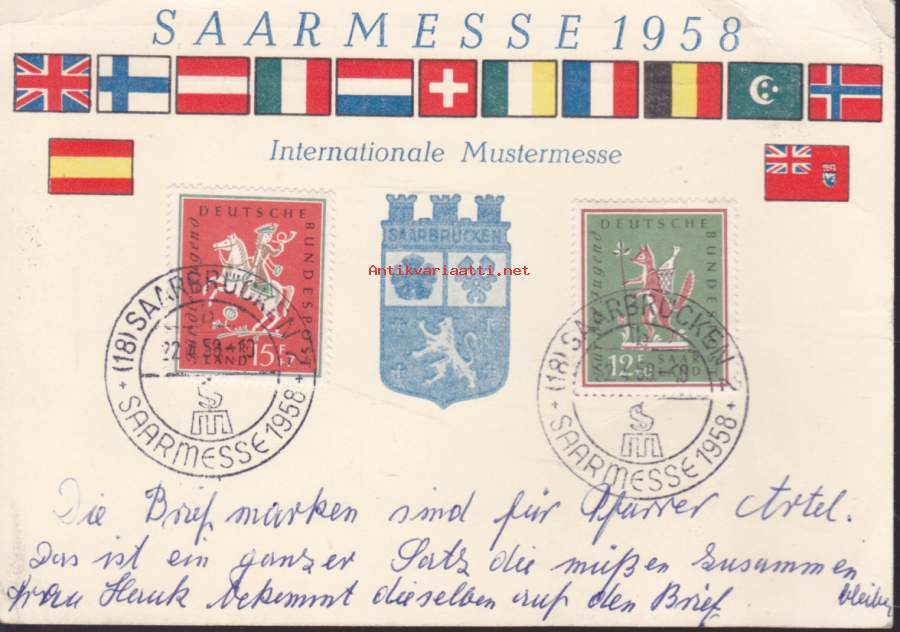 SAARMESSE 1958
Internationale Mustermesse
DEUTSCHE
BUNDESPOST
für die Jugend
15 F
SAARLAND
(18) SAARBRÜCKEN
SAARMESSE 1958
SAARBRÜCKEN
Antikvariaatti.net
DEUTSCHE
BUNDESPOST
für die Jugend
12 F
SAARLAND
(18) SAARBRÜCKEN
SAARMESSE 1958
Die Briefmarken sind für Pfarrer Artel.
Das ist ein ganzer Satz die müßen zusammen bleiben
Frau Hauk bekommt dieselben auf den Brief